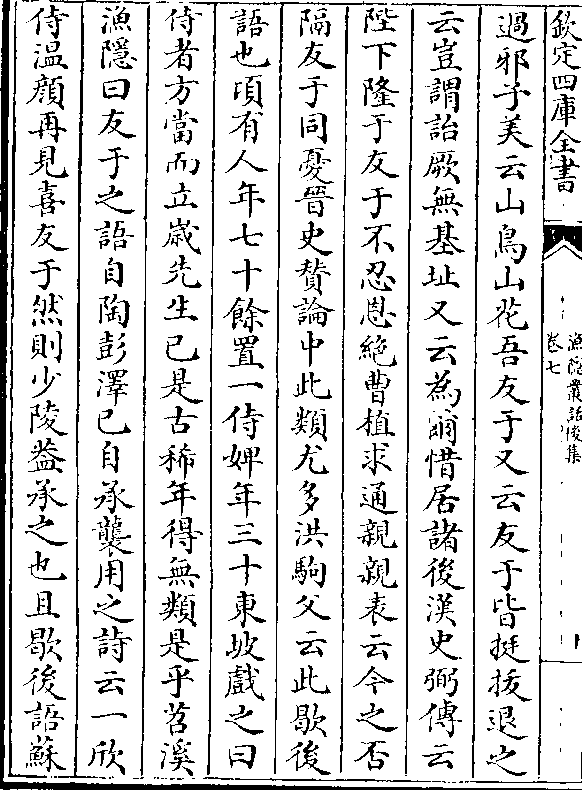 欽定四庫全書
漁隱叢話後集
卷七
過邪子美云山鳥山花吾友于又云友于皆挺拔退之
云豈謂詒厥無基址又云為爾惜居諸後漢史弼傳云
陛下隆于友于不忍恩絶曹植求通親親表云今之否
隔友于同憂晉史贊論中此類尤多洪駒父云此歇後
語也頃有人年七十餘置一侍婢年三十東坡戲之曰
侍者方當而立歲先生已是古稀年得無類是乎苕溪
漁隱曰友于之語自陶彭澤已自承襲用之詩云一欣
侍溫顔再見喜友于然則少陵葢承之也且歇後語蘇